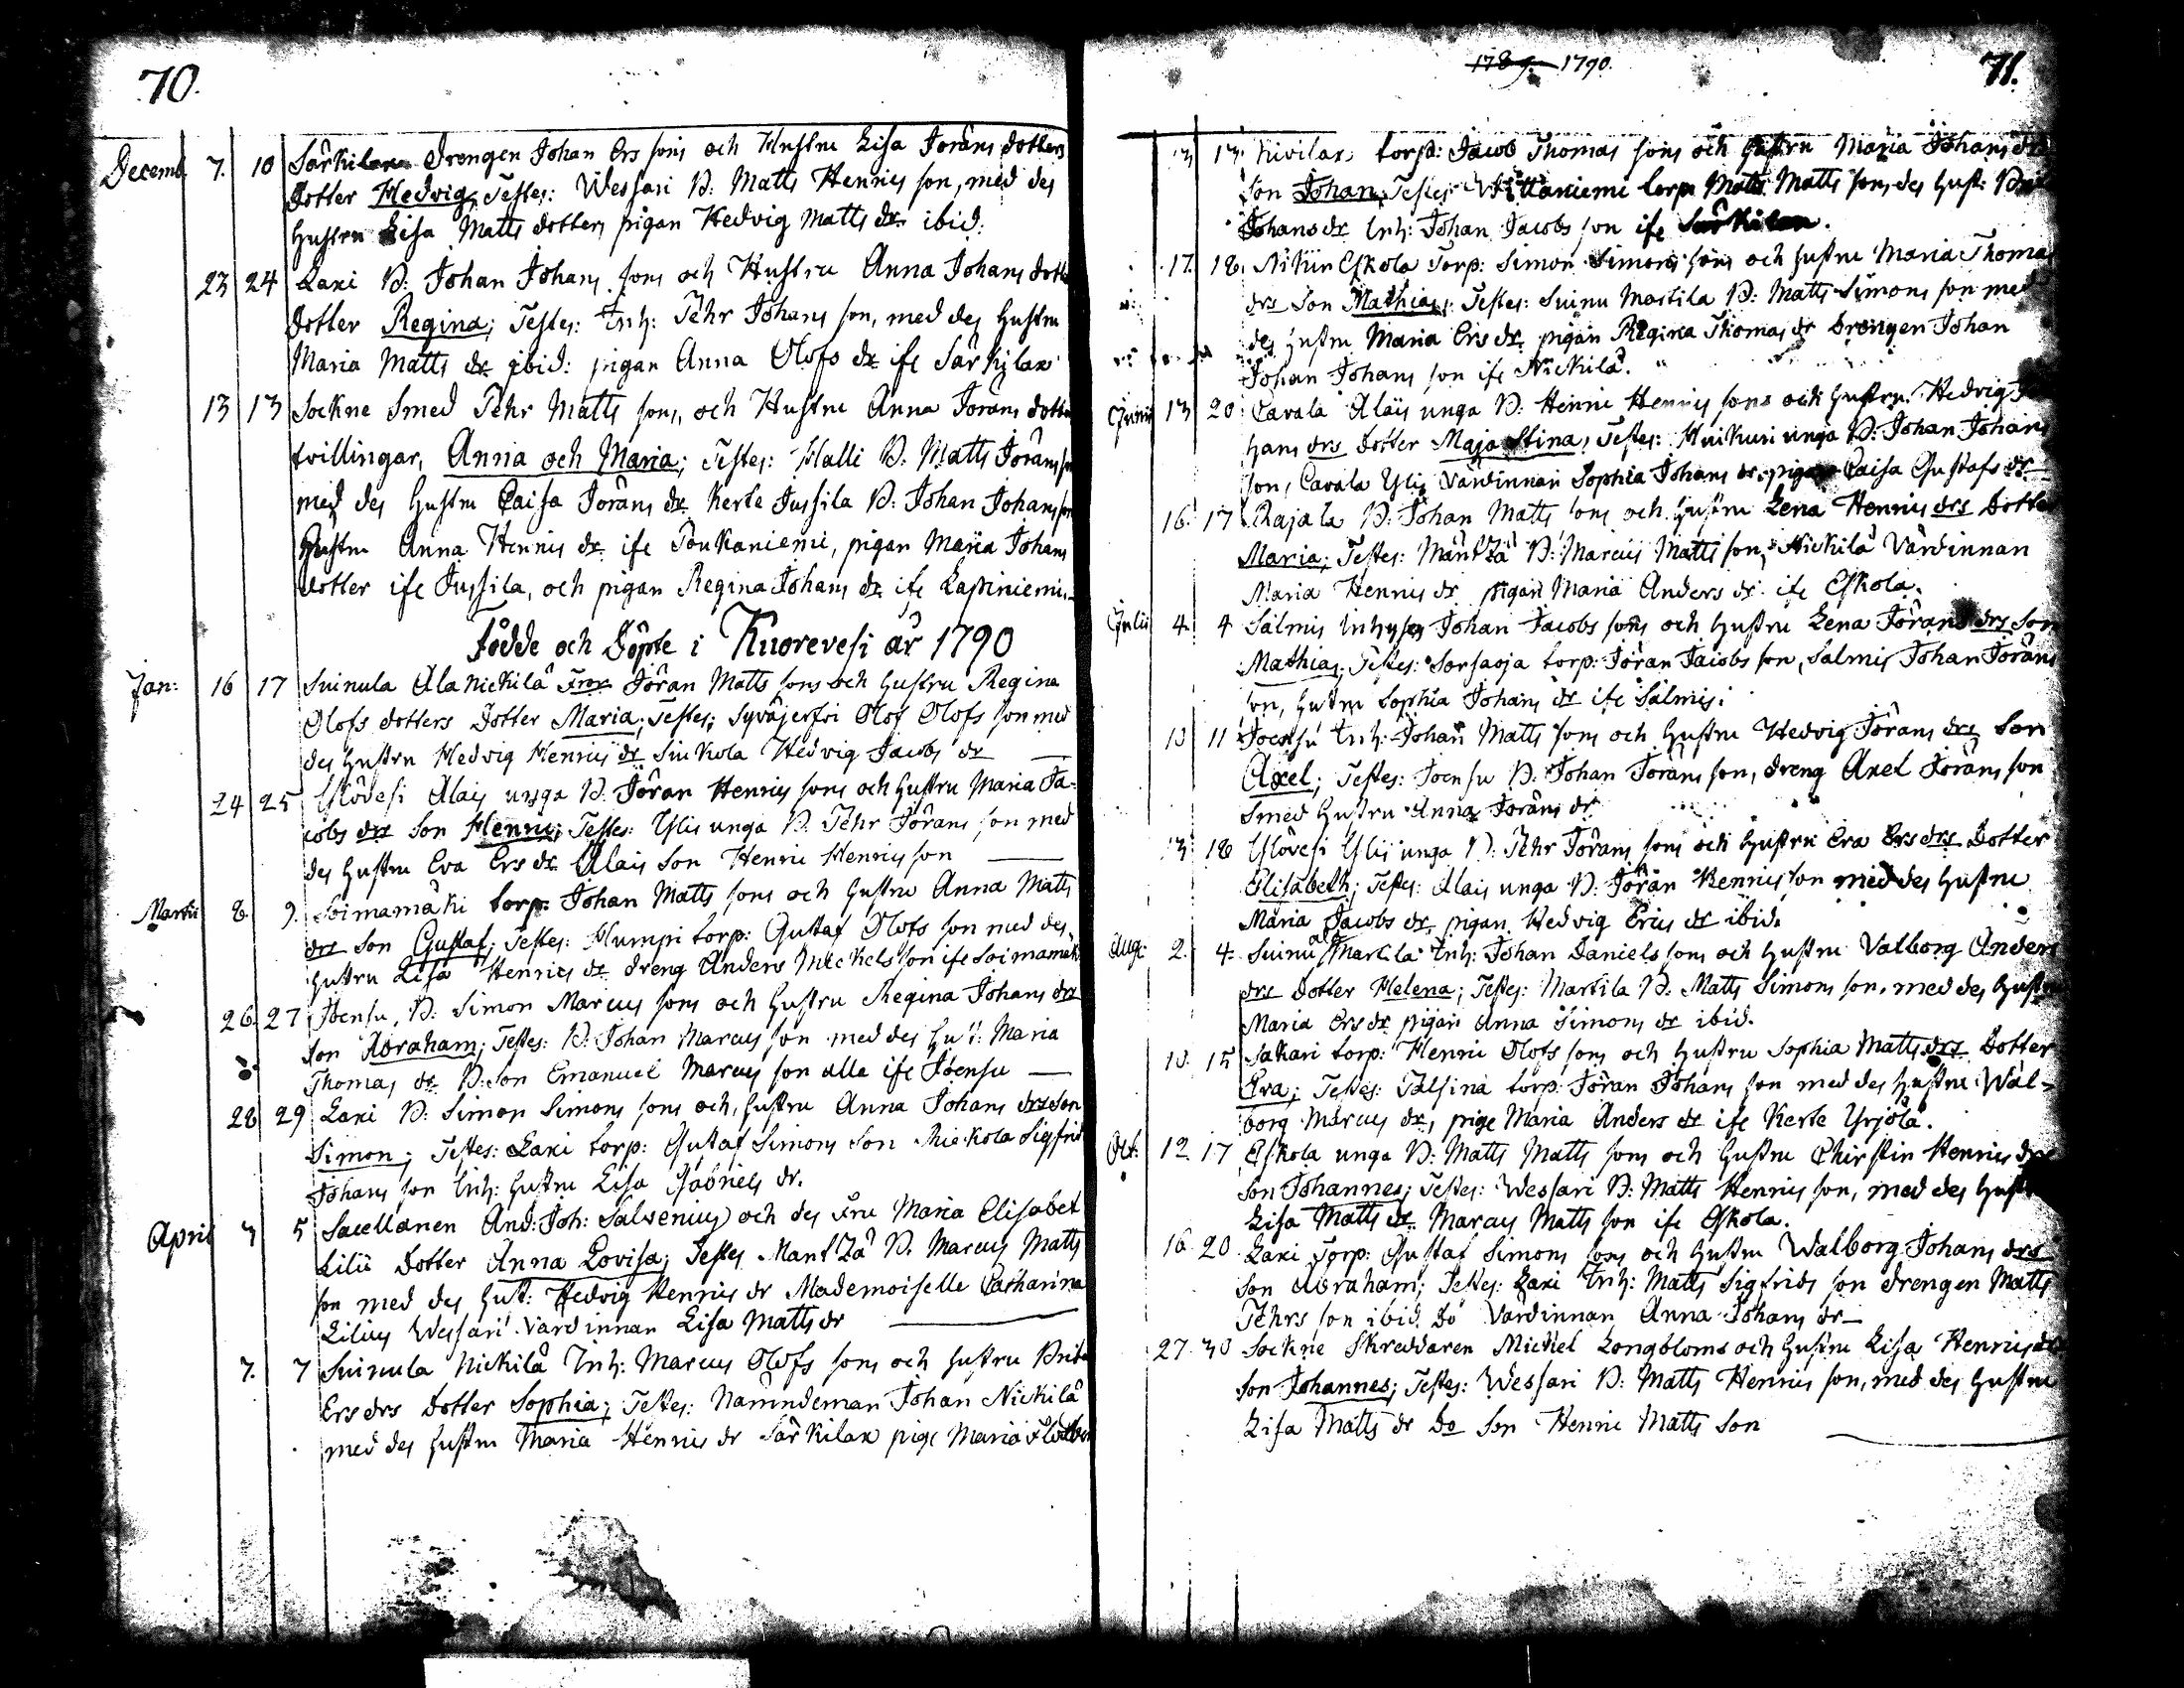 70.
Decemb. 7. 10 Särkilax Drengen Johan Ers sons och Hustru Lisa Jörans dotters
dotter Hedvig, Testes: Wessari B: Matts Henrics son, med des
hustru Lisa Matts dotter, pigan Hedvig Matts dr ibid.
23 24 Laxi B: Johan Johans sons och Hustru Anna Johans dott
dotter Regina; Testes: Inh: Pehr Johans son, med des hustru
Maria Matts dr ibid: pigan Anna Olofs dr ife Särkilax
13 13 Sockne Smed Pehr Matts sons, och Hustru Anna Jörans dott
tvillingar, Anna och Maria; Testes: Halli B: Matts Jörans s
med des hustru Caisa Jörans dr Kerte Jussila B: Johan Johans so
hustru Anna Henrics dr ife Poukaniemi, pigan Maria Johans
dotter ife Jussila, och pigan Regina Johans dr ife Lapiniemi.
Födde och Döpte i Kuorevesi år 1790
Jan: 16 17 Suinula Ala Nickilä Torp Jöran Matts sons och hustru Regina
Olofs dotters Dotter Maria; Testes; Syväjerfvi Olof Olofs son med
des hustru Hedvig Henrics dr Suckola Hedvig Jacobs dr
24 25 Yslövesi Alais unga B. Jöran Henrics sons och hustru Maria Ja-
cobs drs Son Henric; Testes: Ylis unga B. Pehr Jörans son med
des hustru Eva Ers dr Alais Son Henric Henrics son
Martii 8. 9. Soimamäki torp: Johan Matts sons och hustru Anna Matts
drs Son Gustaf; Testes: Humpi torp: Gustaf Olofs son med des
hustru Lisa Henrics dr dreng Anders Mickels son ife Soimamäk
26. 27 Joensu, B: Simon Marcus sons och hustru Regina Johans drs
son Abraham; Testes: B: Johan Marcus son med des hu Maria
Thomas dr B: son Emanuel Marcus son alla ife Joensu
28 29 Laxi B: Simon Simons sons och hustru Anna Johans drs son
Simon; Testes: Laxi torp: Gustaf Simons Son Mickola Sigfrid
Johans son Inh: hustru Lisa Gabriels dr.
April 3 5 Sacellanen And: Joh: Salvenius och des Fru Maria Elisabet
Lilii Dotter Anna Lovisa; Testes Mantzä B. Marcus Matts
son med des hust: Hedvig Henrics dr Mademoiselle Catharina
Lilius Wessari Värdinnan Lisa Matts dr
7. 7 Suinula Nickilä Inh: Marcus Olofs sons och hustru Brita
Ers drs Dotter Sophia; Testes: Nämndeman Johan Nickilä
med des hustru Maria Henrics dr Särkilax pige Maria
1789. 1790.
71.
13 13. Kivilax torp: Jacob Thomas sons och hustru Maria Johans drs
Son Johan; Testes: Wittaniemi torp: Matts Matts son, des hust: Brit
Johans dr Inh: Johan Jacobs son ife Särkilax.
17. 18. Nikün Eskola Torp: Simon Simons sons och hustru Maria Thomas
drs Son Mathias; Testes: Suinu Martila B: Matts Simons son med
des hustru Maria Ers dr. pigan Regina Thomas dr Drengen Johan
Johan Johans son ife Nickilä.
Junii 13 20 Cavala Alais unga B. Henric Henrics sons och hustru Hedvig Jo
hans drs dotter Maja Stina, Testes: Huikuri unga B: Johan Johans
son, Cavala Ylis Värdinnan Sophia Johans dr pigan Caisa Gustafs dr
16. 17 Rajala B: Johan Matts sons och hustru Lena Henrics drs Dotter
Maria; Testes: Mäntzä B: Marcus Matts son, Nickilä Värdinnan
Maria Henrics dr pigan Maria Anders dr ife Eskola.
Julii 4. 4 Salmis Inhyses Johan Jacobs sons och hustru Lena Jörans drs Son
Mathias; Testes: Sorsaoja torp: Jöran Jacobs son, Salmis Johan Jörans
son, hustru Sophia Johans dr ife Salmis.
10 11 Joensu Inh: Johan Matts sons och hustru Hedvig Jörans drs Son
Axel; Testes: Joensu B: Johan Jörans son, dreng Axel Jörans son
Smed hustru Anna Jörans dr
13 18 Yslövesi Ylis unga B: Pehr Jörans sons och hustru Eva Ers drs Dotter
Elisabeth; Testes: Alais unga B: Jöran Henrics son med des hustru
Maria Jacobs dr, pigan Hedvig Erics dr ibid.
Aug: 2. 4. Suinu Martila Inh: Johan Daniels sons och hustru Valborg Anders
drs dotter Helena; Testes: Martila B. Matts Simons son, med des hustru
Maria Ers dr pigan Anna Simons dr ibid.
10. 15 Sakari torp: Henric Olofs sons och hustru Sophia Matts drs Dotter
Eva; Testes: Talsina torp: Jöran Johans son med des hustru Wal-
borg Marcus dr, pige Maria Anders dr ife Kerte Yrjölä.
Oct: 12. 17 Eskola unga B: Matts Matts sons och hustru Chirstin Henrics drs
Son Johannes; Testes: Wessari B: Matts Henrics son, med des hustr
Lisa Matts dr Marcus Matts son ife Eskola.
16. 20 Laxi Torp: Gustaf Simons sons och hustru Walborg Johans drs
son Abraham; Testes: Laxi Inh: Matts Sigfrids son drengen Matts
Pehrs son ibid. Do Värdinnan Anna Johans dr
27. 30 Sockne Skreddaren Mickel Longbloms och hustru Lisa Henrics drs
son Johannes; Testes: Wessari B: Matts Henrics son, med des hustru
Lisa Matts dr Do Son Henric Matts Son